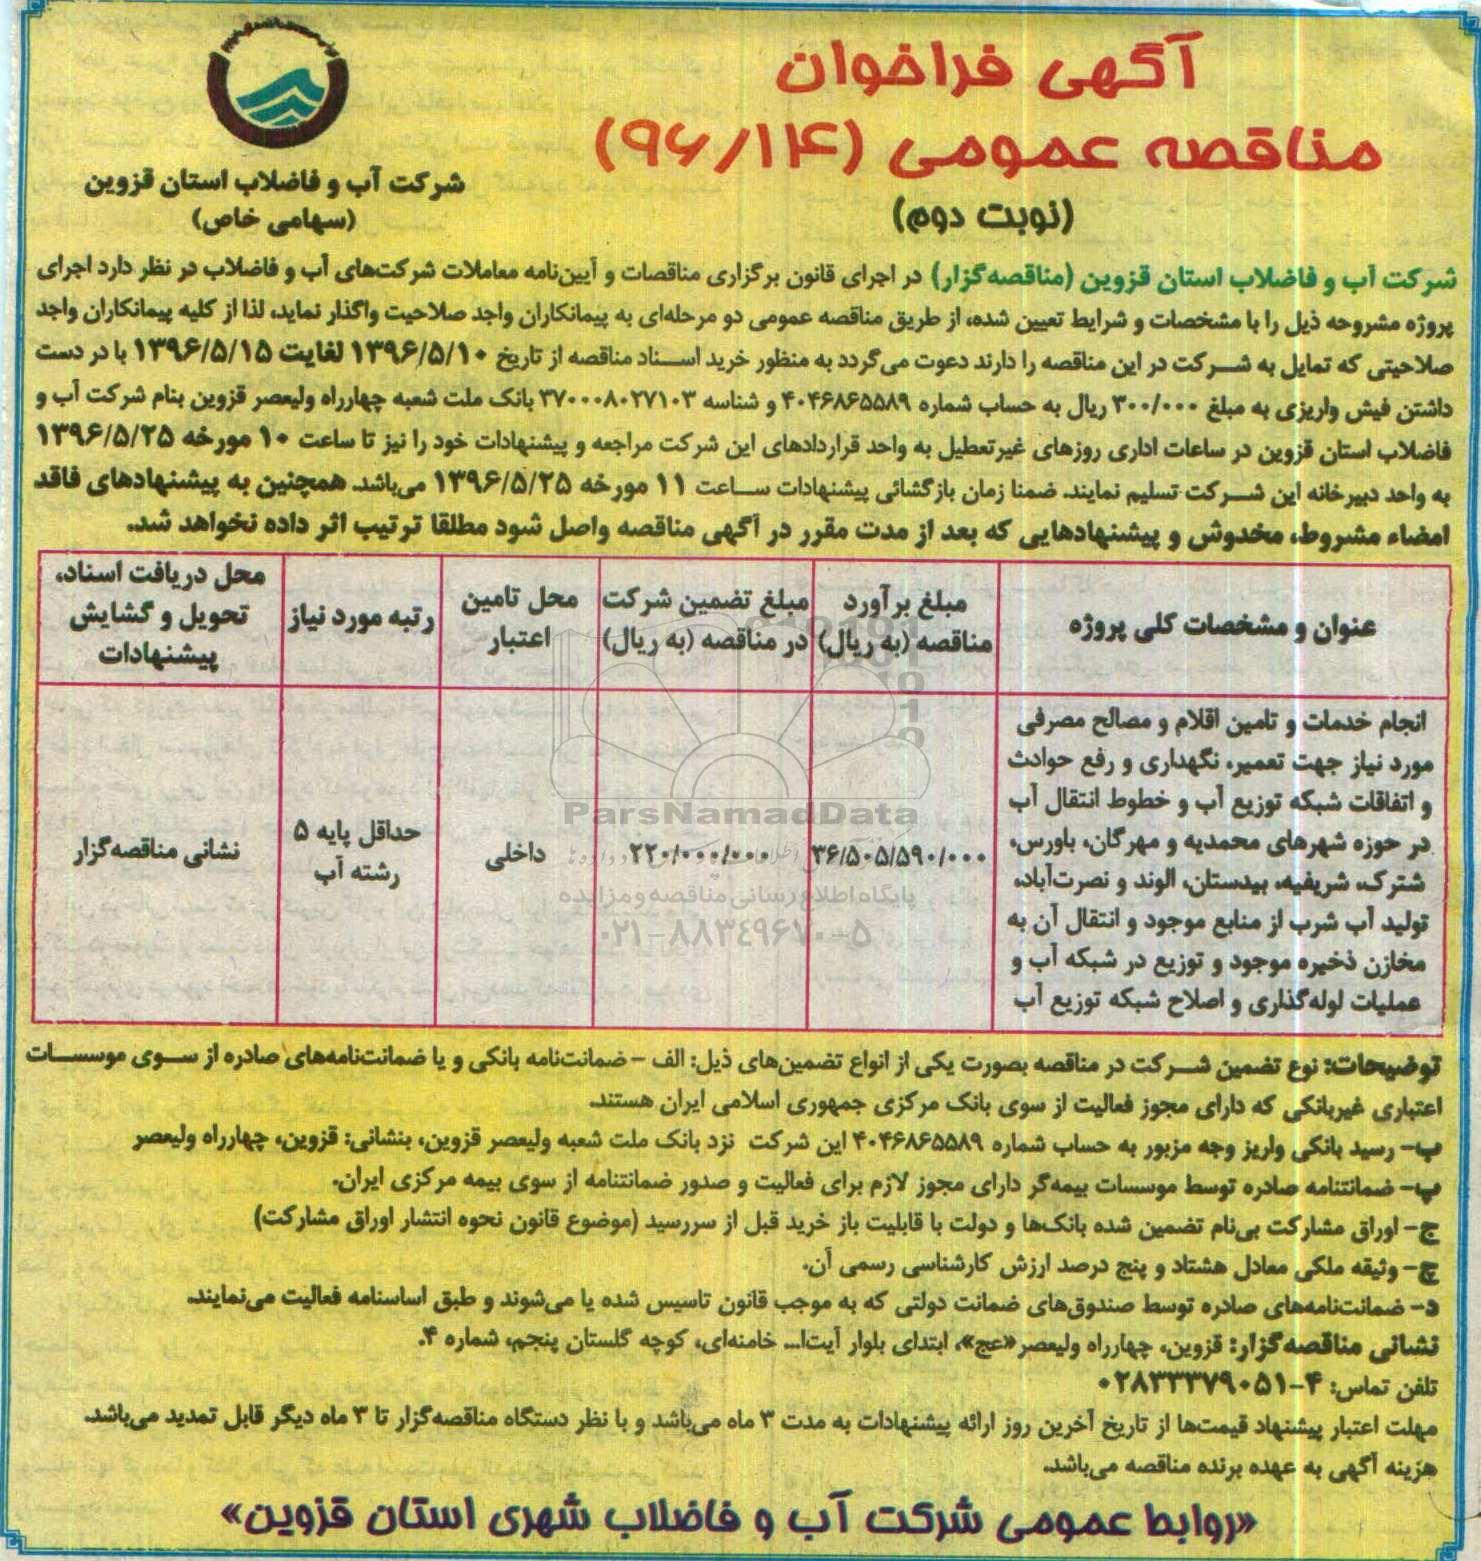 آگهی فراخوان
مناقصه عمومی (۹۶/۱۴)
(نوبت دوم)
شرکت آب و فاضلاب استان قزوین
(سهامی خاص)
شرکت آب و فاضلاب استان قزوین (مناقصه‌گزار) در اجرای قانون برگزاری مناقصات و آیین‌نامه معاملات شرکت‌های آب و فاضلاب در نظر دارد اجرای
پروژه مشروحه ذیل را با مشخصات و شرایط تعیین شده، از طریق مناقصه عمومی دو مرحله‌ای به پیمانکاران واجد صلاحیت واگذار نماید، لذا از کلیه پیمانکاران واجد
صلاحیتی که تمایل به شرکت در این مناقصه را دارند دعوت می‌گردد به منظور خرید اسناد مناقصه از تاریخ ۱۳۹۶/۵/۱۰ لغایت ۱۳۹۶/۵/۱۵ با در دست
داشتن فیش واریزی به مبلغ ۳۰۰/۰۰۰ ریال به حساب شماره ۴۰۴۶۸۶۵۵۸۹ و شناسه ۳۷۰۰۰۸۰۲۷۱۰۳ بانک ملت شعبه چهارراه ولیعصر قزوین بنام شرکت آب و
فاضلاب استان قزوین در ساعات اداری روزهای غیرتعطیل به واحد قراردادهای این شرکت مراجعه و پیشنهادات خود را نیز تا ساعت ۱۰ مورخه ۱۳۹۶/۵/۲۵
به واحد دبیرخانه این شرکت تسلیم نمایند. ضمنا زمان بازگشائی پیشنهادات ساعت ۱۱ مورخه ۱۳۹۶/۵/۲۵ می‌باشد. همچنین به پیشنهادهای فاقد
امضاء مشروط، مخدوش و پیشنهادهایی که بعد از مدت مقرر در آگهی مناقصه واصل شود مطلقا ترتیب اثر داده نخواهد شد.
عنوان و مشخصات کلی پروژه
مبلغ برآورد
مناقصه (به ریال)
مبلغ تضمین شرکت
در مناقصه (به ریال)
محل تامین
اعتبار
رتبه مورد نیاز
محل دریافت اسناد،
تحویل و گشایش
پیشنهادات
انجام خدمات و تامین اقلام و مصالح مصرفی
مورد نیاز جهت تعمیر، نگهداری و رفع حوادث
و اتفاقات شبکه توزیع آب و خطوط انتقال آب
در حوزه شهرهای محمدیه و مهرگان، باورس،
شترک، شریفیه، بیدستان، الوند و نصرت‌آباد،
تولید آب شرب از منابع موجود و انتقال آن به
مخازن ذخیره موجود و توزیع در شبکه آب و
عملیات لوله‌گذاری و اصلاح شبکه توزیع آب
۳۶/۵۰۵/۵۹۰/۰۰۰
۲۲۰/۰۰۰/۰۰۰
داخلی
حداقل پایه ۵
رشته آب
نشانی مناقصه‌گزار
ParsNamadData
پایگاه اطلاع رسانی مناقصه و مزایده
۰۲۱-۸۸۳۴۹۶۷۰-۵
توضیحات: نوع تضمین شرکت در مناقصه بصورت یکی از انواع تضمین‌های ذیل: الف - ضمانت‌نامه بانکی و یا ضمانت‌نامه‌های صادره از سوی موسسات
اعتباری غیربانکی که دارای مجوز فعالیت از سوی بانک مرکزی جمهوری اسلامی ایران هستند.
ب- رسید بانکی واریز وجه مزبور به حساب شماره ۴۰۴۶۸۶۵۵۸۹ این شرکت نزد بانک ملت شعبه ولیعصر قزوین، بنشانی: قزوین، چهارراه ولیعصر
پ- ضمانتنامه صادره توسط موسسات بیمه‌گر دارای مجوز لازم برای فعالیت و صدور ضمانتنامه از سوی بیمه مرکزی ایران.
ج- اوراق مشارکت بی‌نام تضمین شده بانک‌ها و دولت با قابلیت باز خرید قبل از سررسید (موضوع قانون نحوه انتشار اوراق مشارکت)
چ- وثیقه ملکی معادل هشتاد و پنج درصد ارزش کارشناسی رسمی آن.
د- ضمانت‌نامه‌های صادره توسط صندوق‌های ضمانت دولتی که به موجب قانون تاسیس شده یا می‌شوند و طبق اساسنامه فعالیت می‌نمایند.
نشانی مناقصه‌گزار: قزوین، چهارراه ولیعصر «عج»، ابتدای بلوار آیت‌ا... خامنه‌ای، کوچه گلستان پنجم، شماره ۴.
تلفن تماس: ۴-۰۲۸۳۳۳۷۹۰۵۱
مهلت اعتبار پیشنهاد قیمت‌ها از تاریخ آخرین روز ارائه پیشنهادات به مدت ۳ ماه می‌باشد و با نظر دستگاه مناقصه‌گزار تا ۳ ماه دیگر قابل تمدید می‌باشد.
هزینه آگهی به عهده برنده مناقصه می‌باشد.
«روابط عمومی شرکت آب و فاضلاب شهری استان قزوین»